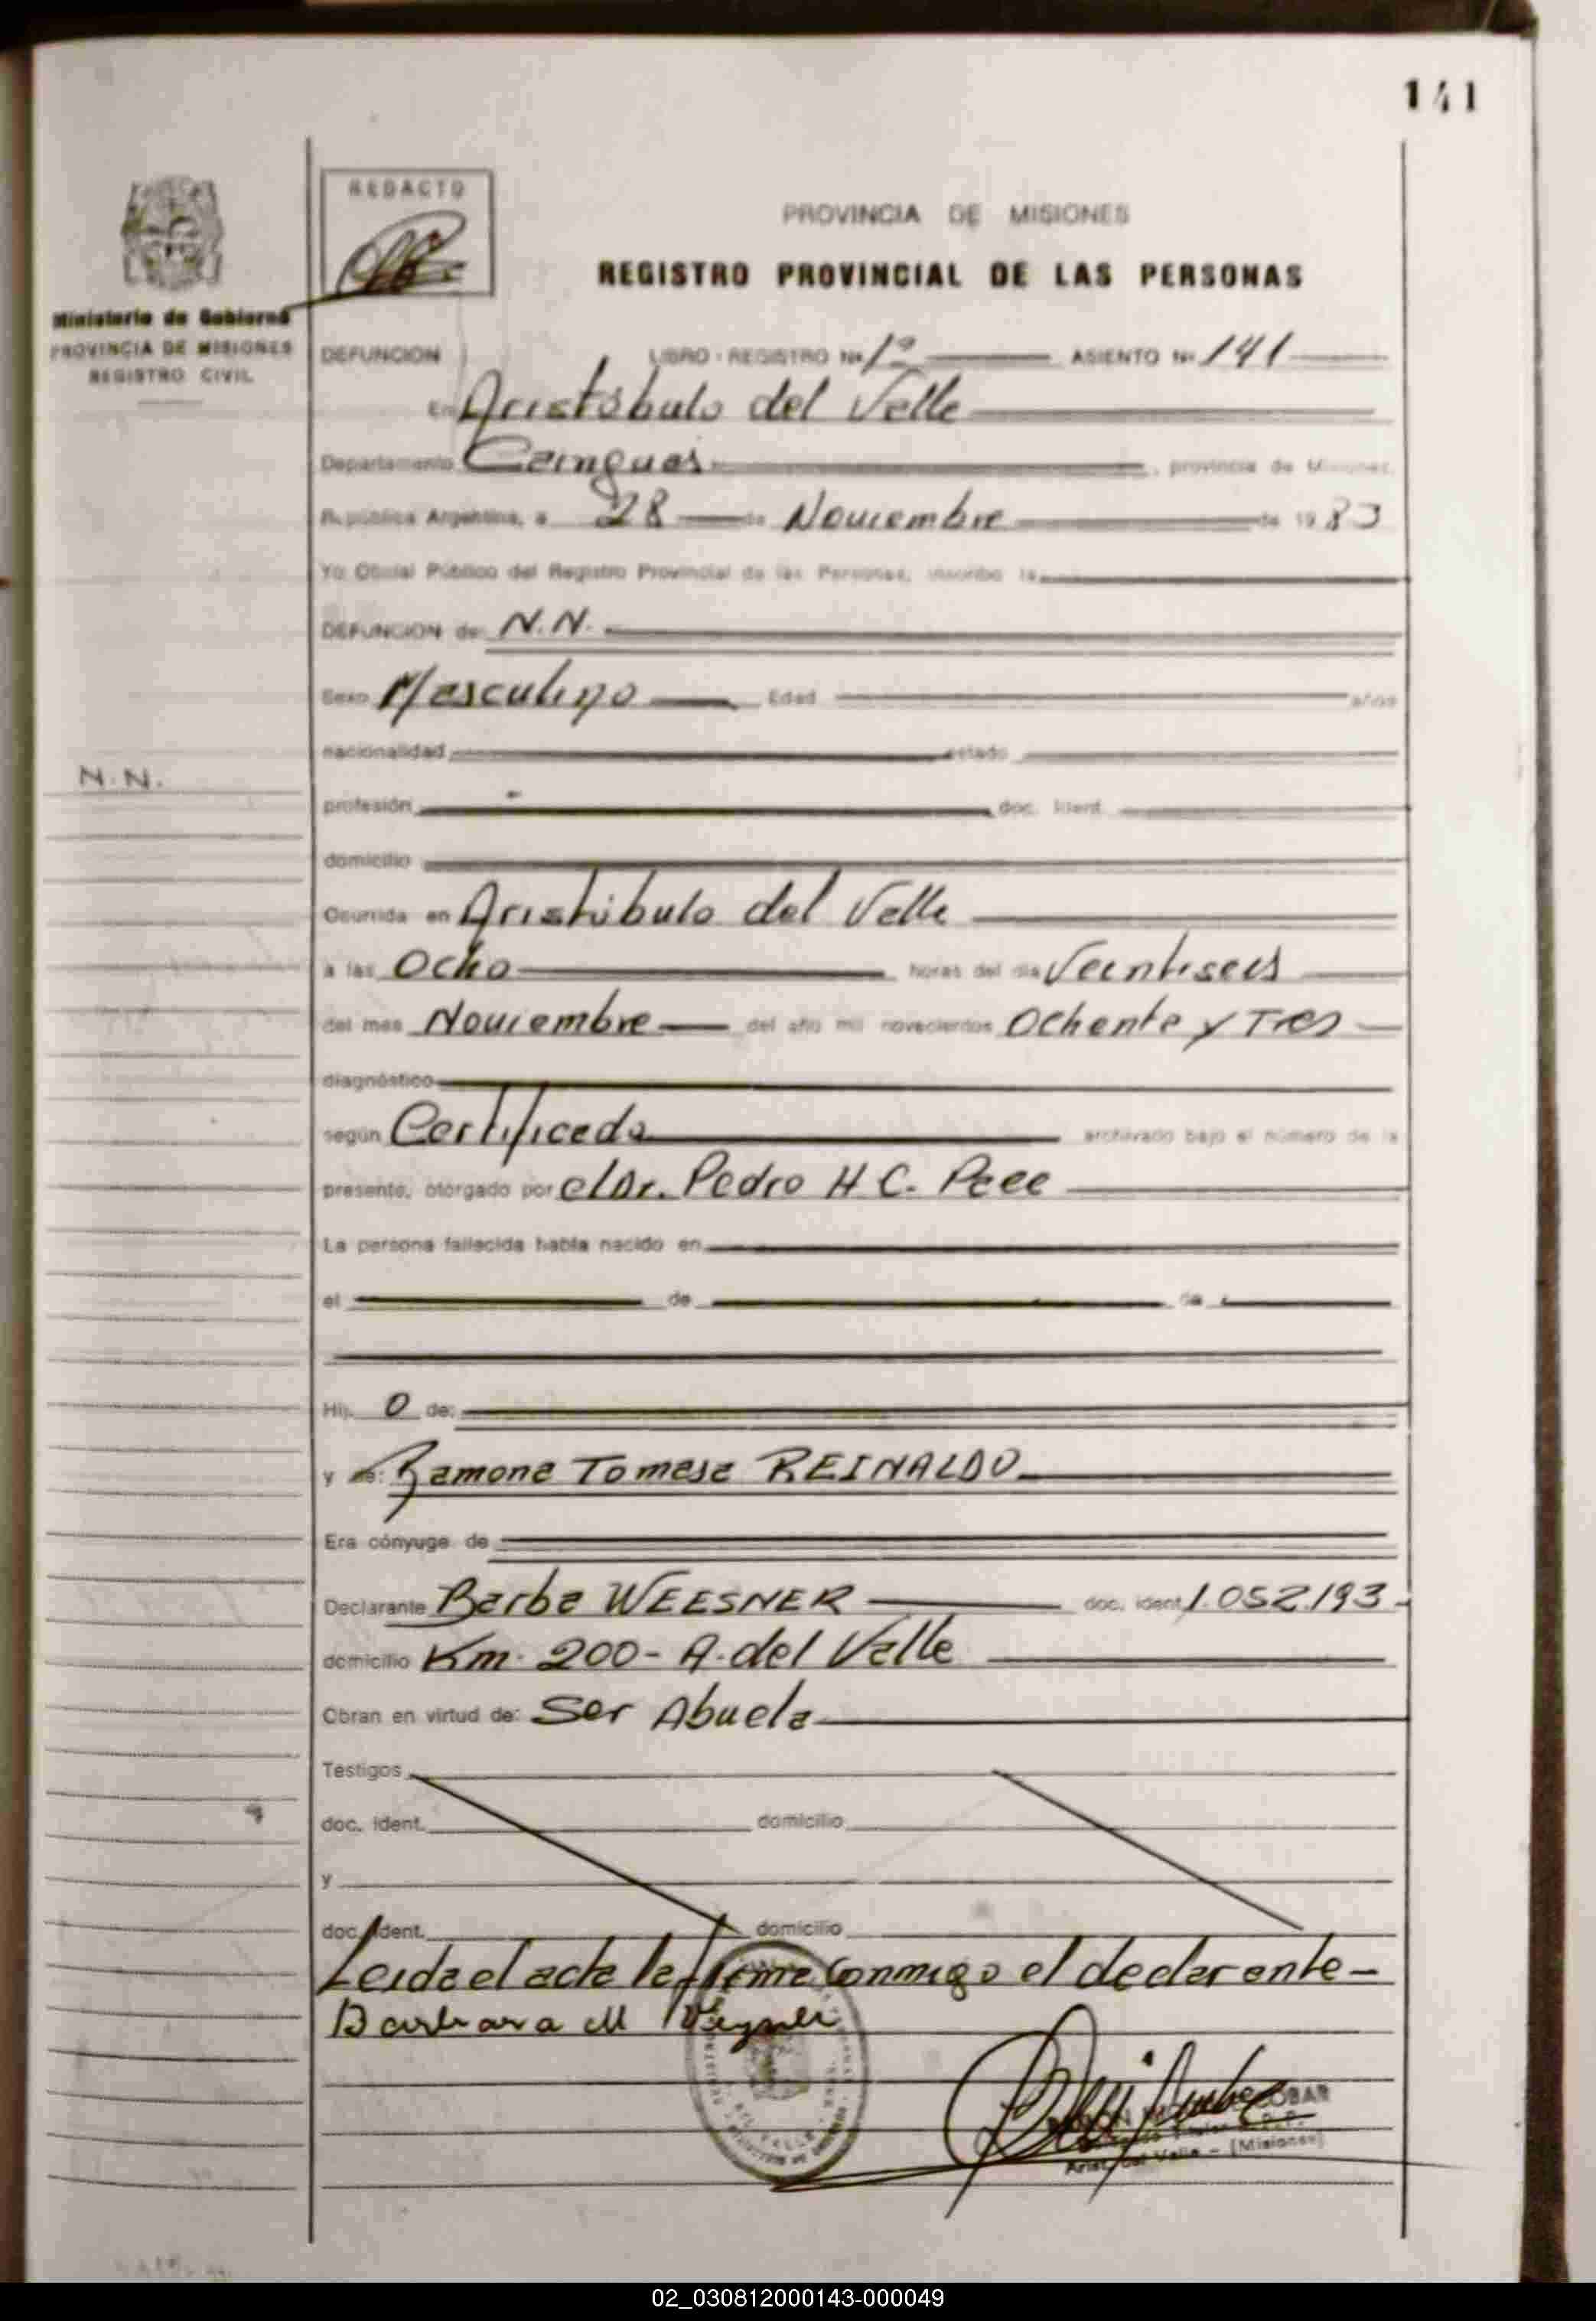 141
REDACTO
PROVINCIA DE MISIONES
REGISTRO PROVINCIAL DE LAS PERSONAS
Ministerio de Gobierno
PROVINCIA DE MISIONES
REGISTRO CIVIL
DEFUNCION LIBRO - REGISTRO Nº 1º ASIENTO Nº 141
En Aristóbulo del Valle
Departamento Cainguas, provincia de Misiones,
República Argentina, a 28 de Noviembre de 1983
Yo Oficial Público del Registro Provincial de las Personas, inscribo la
DEFUNCION de: N.N.
Sexo Masculino Edad años
nacionalidad estado
N.N.
profesión doc. ident.
domicilio
Ocurrida en Aristóbulo del Valle
a las Ocho horas del día Veintiseis
del mes Noviembre del año mil novecientos Ochenta y Tres
diagnóstico
según Certificado archivado bajo el número de la
presente, otorgado por el Dr. Pedro H C.
La persona fallecida había nacido en
el de de
Hij o de:
y de: Ramona Tomasa REINALDO
Era cónyuge de
Declarante Barba WEESNER doc. ident. 1.052.193
domicilio Km. 200 - A. del Valle
Obran en virtud de: Ser Abuela
Testigos
doc. ident. domicilio
y
doc. ident. domicilio
Leida el acta la firma conmigo el declarante -
Barbara M
Arist. del Valle - (Misiones)
02_030812000143-000049